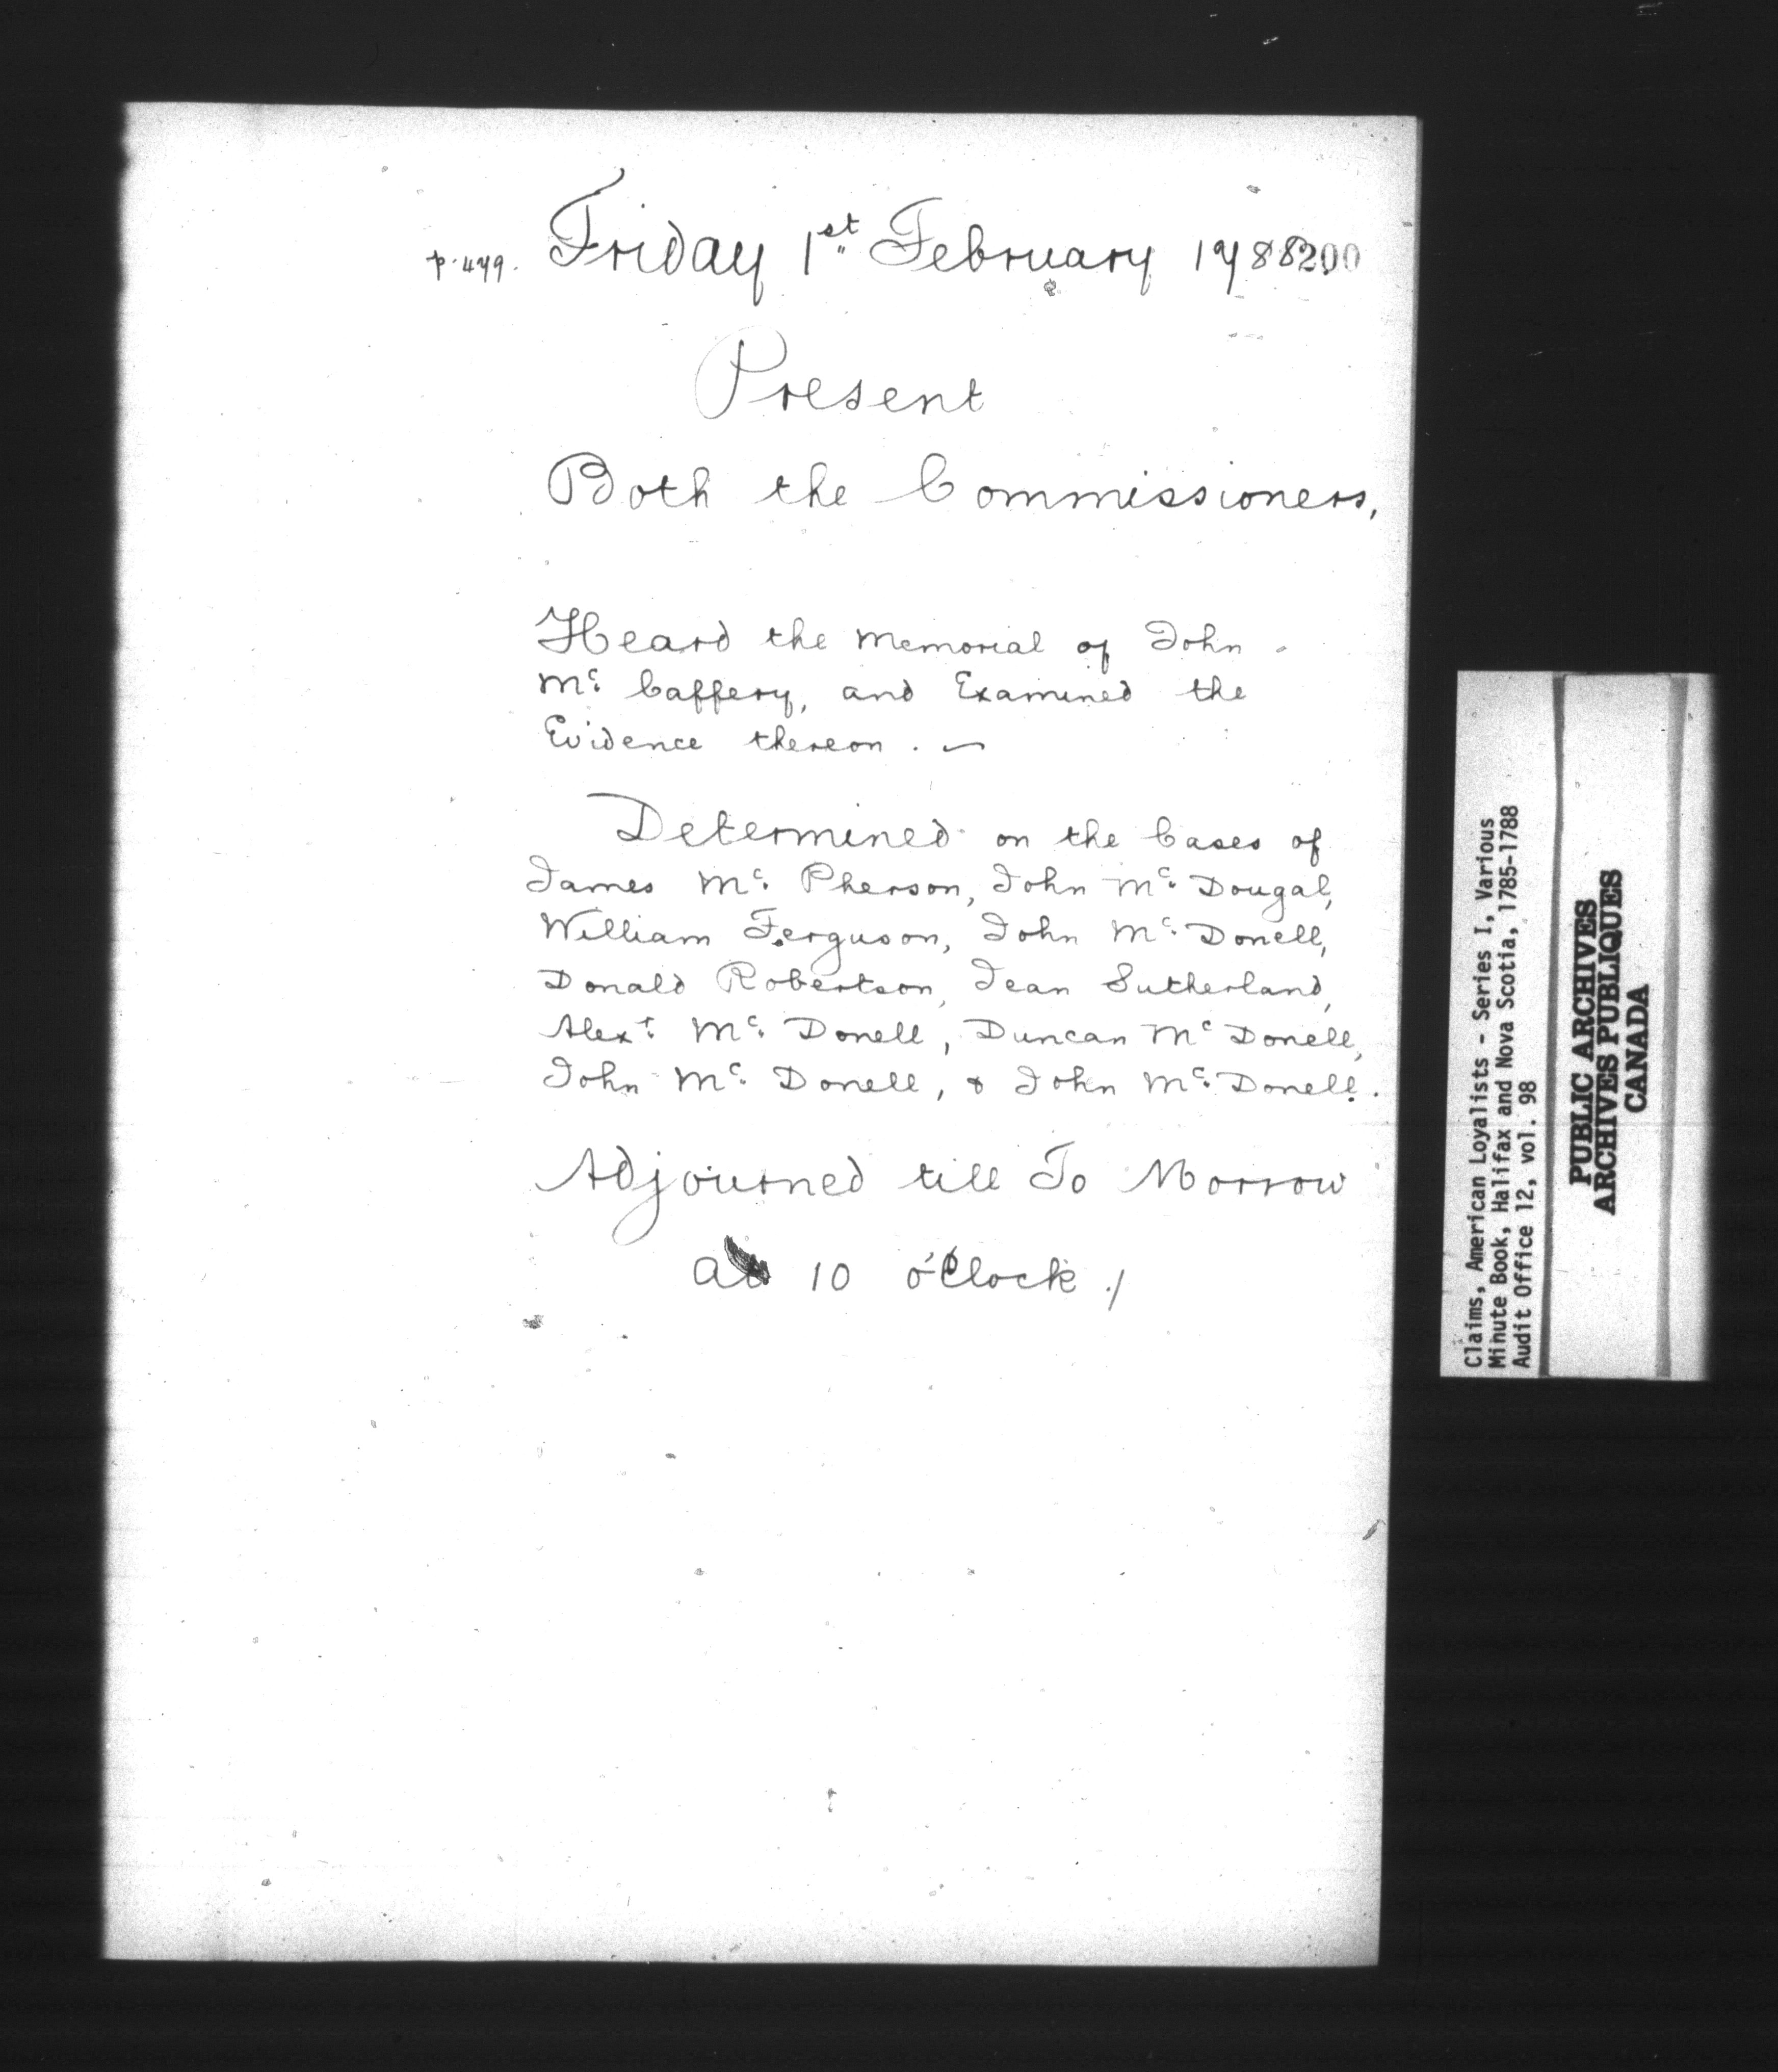 p. 479. Friday 1st February 1788 200
Present
Both the Commissioners,
Heard the Memorial of John
Mc. Caffery, and Examined the
Evidence thereon.
Determined on the Cases of
James Mc. Pherson, John Mc. Dougal,
William Ferguson, John Mc. Donell,
Donald Robertson, Jean Sutherland,
Alexr. Mc. Donell, Duncan Mc Donell,
John Mc. Donell, & John Mc. Donell.
Adjourned till To Morrow
at 10 o'Clock ./
Claims, American Loyalists - Series I, Various
Minute Book, Halifax and Nova Scotia, 1785-1788
Audit Office 12, vol. 98
PUBLIC ARCHIVES
ARCHIVES PUBLIQUES
CANADA